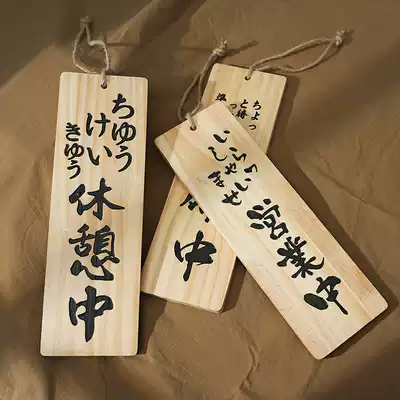 ちゅう
けい
きゅう
休憩中
ちょっ
と待
中
いらっしゃいませ
営業中